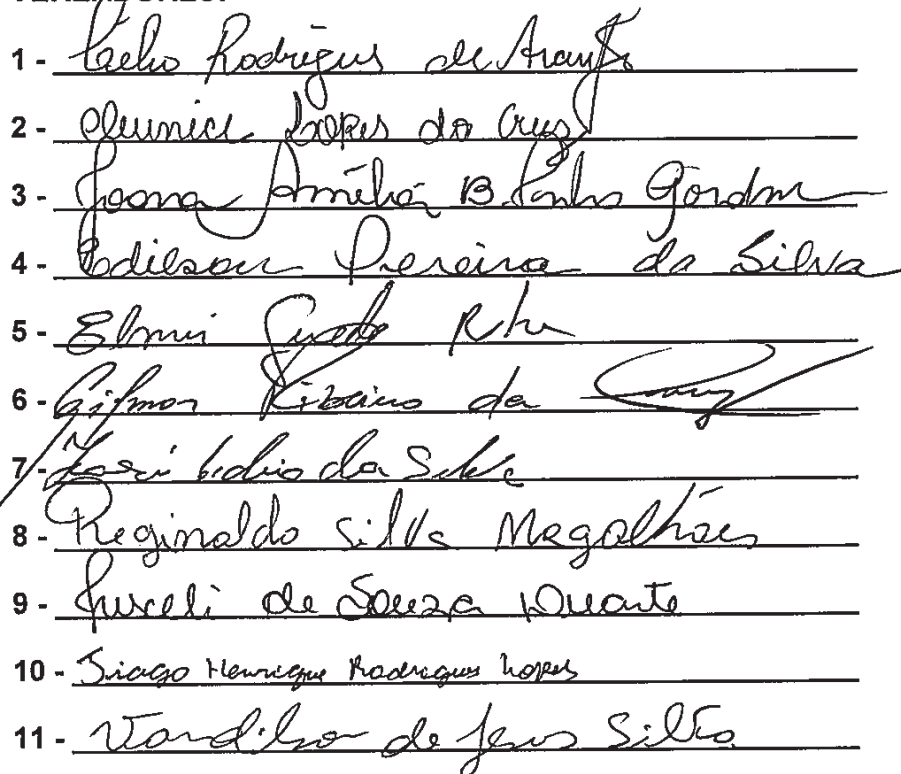 VEREADORES:
1 - Célio Rodrigues de Araujo
2 - Cleunice Lopes da Cruz
3 - Joana Amélia B. Gordon
4 - Edilson Pereira da Silva
5 - Elmi
6 - Gilmar Ribeiro da
7 - José da Silva
8 - Reginaldo Silva Magalhães
9 - Jusceli de Souza Duarte
10 - Tiago Henrique Rodrigues Lopes
11 - Vandilson de Jesus Silva